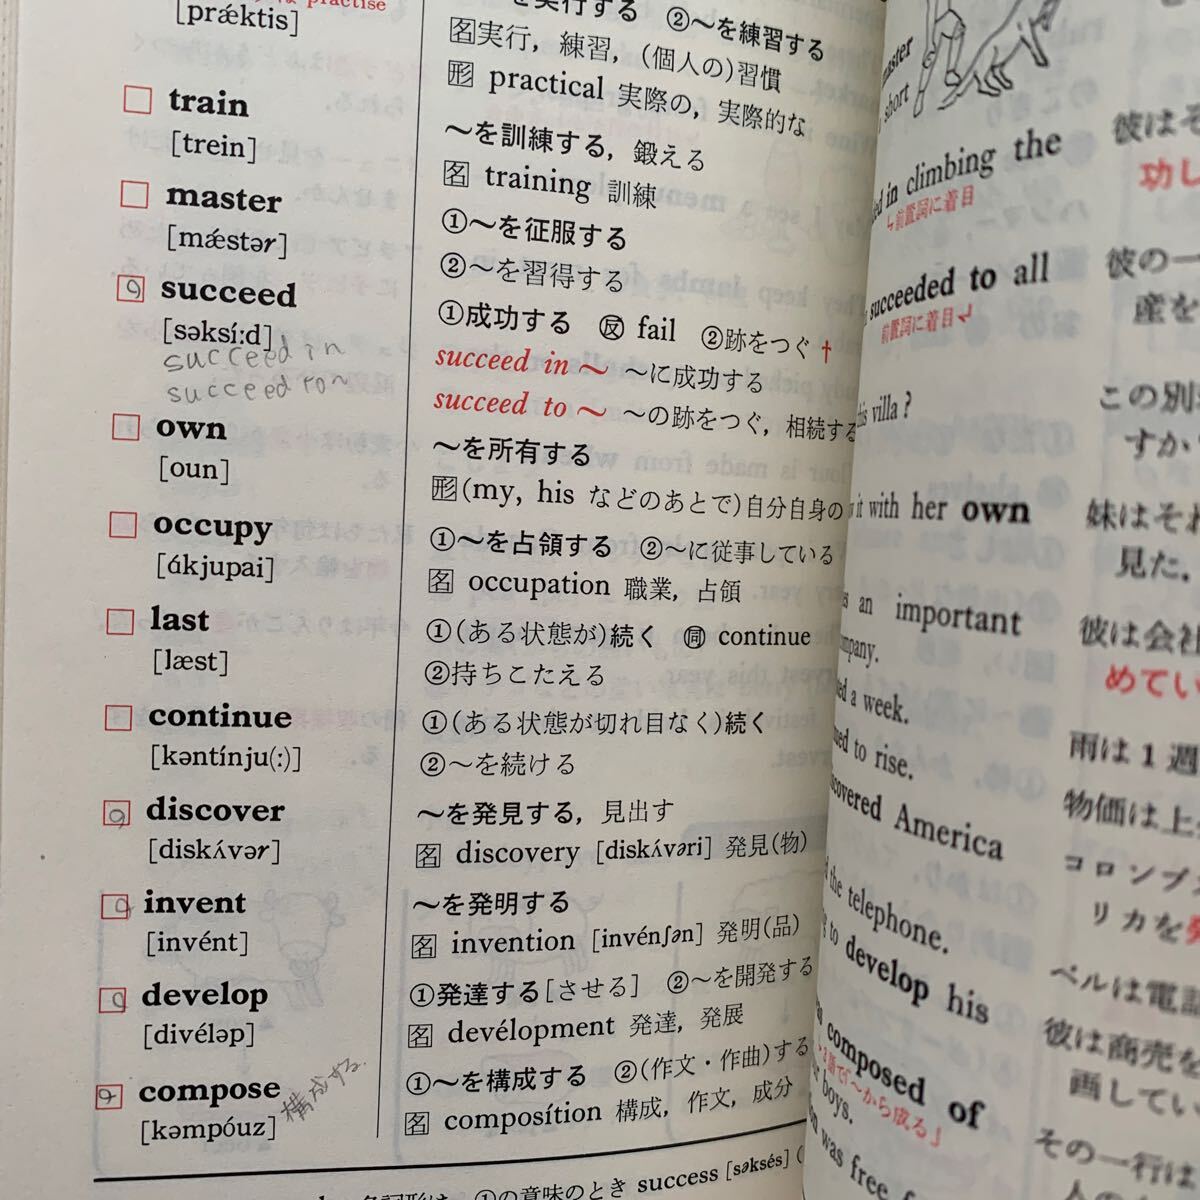 practise
[prǽktis]
を実行する ②～を練習する
名 実行，練習，(個人の)習慣
形 practical 実際の，実際的な
train
[trein]
～を訓練する，鍛える
名 training 訓練
master
[mǽstər]
①～を征服する
②～を習得する
succeed
[səksíːd]
succeed in
succeed to～
①成功する 反 fail ②跡をつぐ †
succeed in ～ ～に成功する
succeed to ～ ～の跡をつぐ，相続する
own
[oun]
～を所有する
形 (my, his などのあとで)自分自身の
occupy
[ákjupai]
①～を占領する ②～に従事している
名 occupation 職業，占領
last
[læst]
①(ある状態が)続く 同 continue
②持ちこたえる
continue
[kəntínju(ː)]
①(ある状態が切れ目なく)続く
②～を続ける
discover
[diskʌ́vər]
～を発見する，見出す
名 discovery [diskʌ́vəri] 発見(物)
invent
[invént]
～を発明する
名 invention [invénʃən] 発明(品)
develop
[divéləp]
①発達する[させる] ②～を開発する
名 devélopment 発達，発展
compose
[kəmpóuz]
構成する
①～を構成する ②(作文・作曲)する
名 composítion 構成，作文，成分
①の意味のとき success [səksés] (
master
short
in climbing the
前置詞に着目
succeeded to all
前置詞に着目
villa?
it with her own
an important
company.
a week.
to rise.
America
the telephone.
to develop his
composed of
3語で「～から成る」
boys.
was free
彼はそ
功し
彼の一
産を
この別
すか
妹はそれ
見た．
彼は会社
めてい
雨は1週
物価は上
コロンブ
リカを発
ベルは電話
彼は商売を
画してい
その一行は